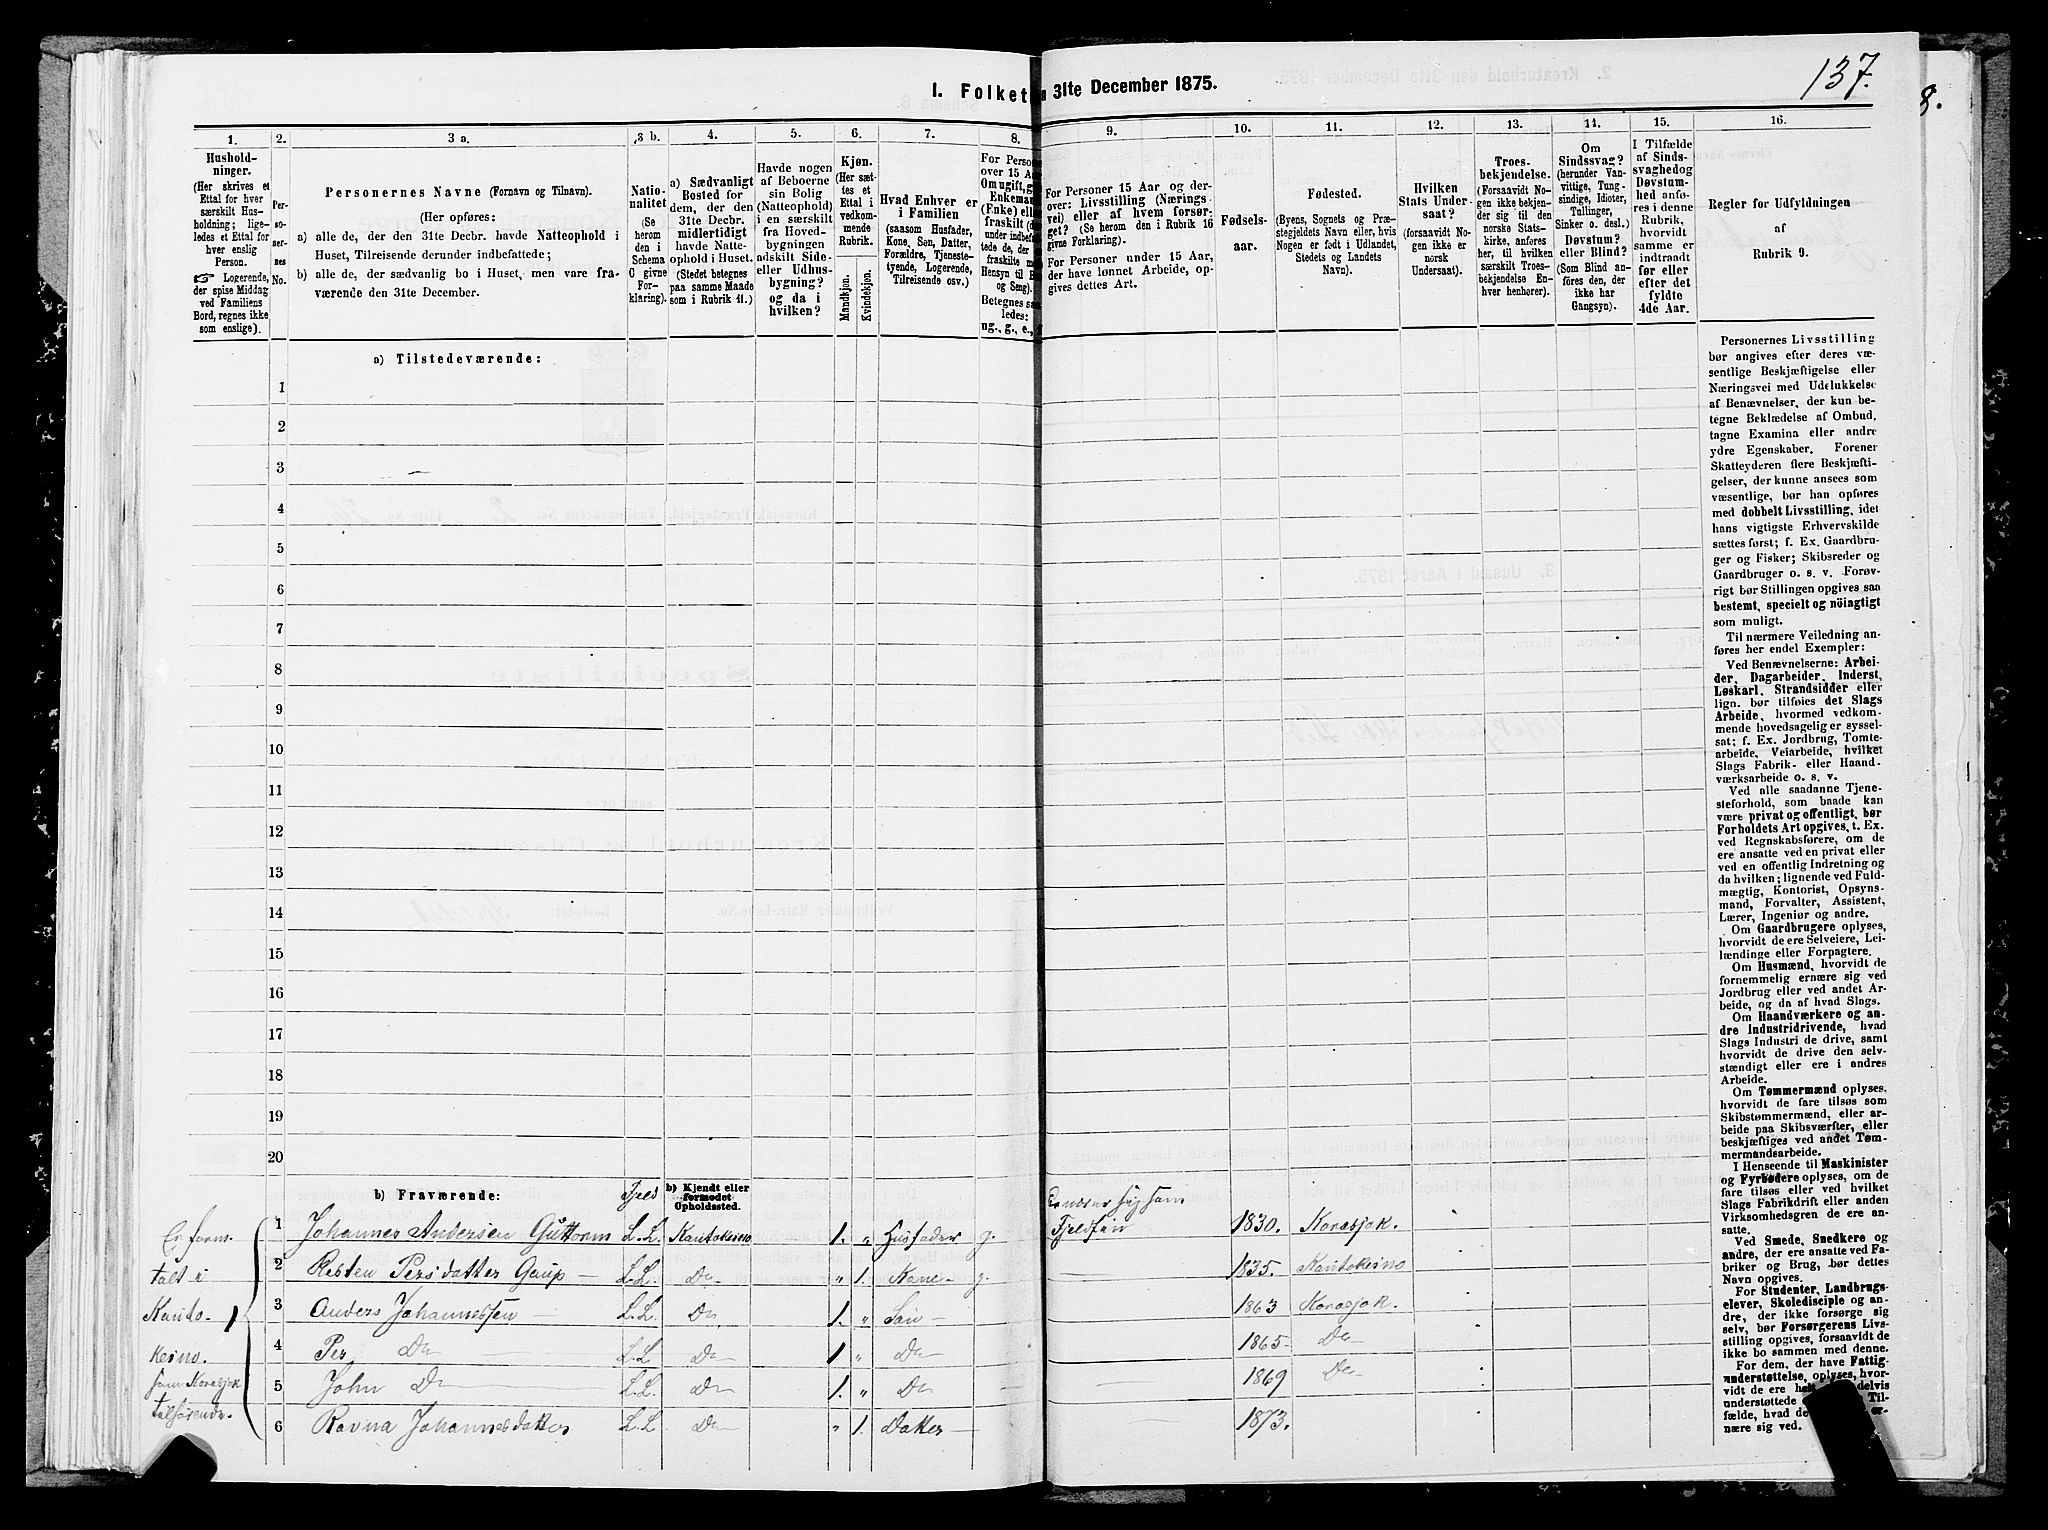 137.
8.
I. Folket
n 31te December 1875.
1.
2.
3 a.
3 b.
4.
5.
6.
7.
8.
9.
10.
11.
12.
13.
14.
15.
16.
Hushold-
ninger.
(Her skrives et
Ettal for hver
særskilt Hus-
holdning; lige-
ledes et Ettal for
hver enslig
Person.
☞ Logerende,
der spise Middag
ved Familiens
Bord, regnes ikke
som enslige).
Per-
so-
ner-
nes
No.
Personernes Navne (Fornavn og Tilnavn).
(Her opføres:
a) alle de, der den 31te Decbr. havde Natteophold i
Huset, Tilreisende derunder indbefattede;
b) alle de, der sædvanlig bo i Huset, men vare fra-
værende den 31te December.
Natio-
nalitet
(Se
herom
den i
Schema
C givne
For-
klaring).
a) Sædvanligt
Bosted for
dem, der den
31te Decbr.
midlertidigt
havde Natte-
ophold i Huset.
(Stedet betegnes
paa samme Maade
som i Rubrik 11.)
Havde nogen
af Beboerne
sin Bolig
(Natteophold)
i en særskilt
fra Hoved-
bygningen
adskilt Side-
eller Udhus-
bygning?
og da i
hvilken?
Kjøn.
(Her sæt-
tes et
Ettal i
vedkom-
mende
Rubrik.
Mandkjøn.
Kvindekjøn.
Hvad Enhver er
i Familien
(saasom Husfader,
Kone, Søn, Datter,
Forældre, Tjeneste-
tyende, Logerende,
Tilreisende osv.)
For Persone
over 15 Aar
Om ugift, g
Enkeman
(Enke) ell
fraskilt (d
under indbef
tede de, de
fraskilte m
Hensyn til B
og Seng).
Betegnes sa
ledes:
ug., g., e.,
For Personer 15 Aar og der-
over: Livsstilling (Nærings-
vei) eller af hvem forsør-
get? (Se herom den i Rubrik 16
givne Forklaring).
For Personer under 15 Aar,
der have lønnet Arbeide, op-
gives dettes Art.
Fødsels-
aar.
Fødested.
(Byens, Sognets og Præ-
stegjeldets Navn eller, hvis
Nogen er født i Udlandet,
Stedets og Landets
Navn).
Hvilken
Stats Under-
saat?
(forsaavidt No-
gen ikke er
norsk
Undersaat).
Troes-
bekjendelse.
(Forsaavidt No-
gen ikke bekjen-
der sig til den
norske Stats-
kirke, anføres
her, til hvilken
særskilt Troes-
bekjendelse En-
hver henhører).
Om
Sindssvag?
(herunder Van-
vittige, Tung-
sindige, Idioter,
Tullinger,
Sinker o. desl.)
Døvstum?
eller Blind?
(Som Blind an-
føres den, der
ikke har
Gangsyn).
I Tilfælde
af Sinds-
svaghed og
Døvstum-
hed anfø-
res i denne
Rubrik,
hvorvidt
samme er
indtraadt
før eller
efter det
fyldte
4de Aar.
Regler for Udfyldningen
af
Rubrik 9.
a) Tilstedeværende:
1
2
3
4
5
6
7
8
9
10
11
12
13
14
15
16
17
18
19
20
Personernes Livsstilling
bør angives efter deres væ-
sentlige Beskjæftigelse eller
Næringsvei med Udelukkelse
af Benævnelser, der kun be-
tegne Beklædelse af Ombud,
tagne Examina eller andre
ydre Egenskaber. Forener
Skatteyderen flere Beskjæfti-
gelser, der kunne ansees som
væsentlige, bør han opføres
med dobbelt Livsstilling, idet
hans vigtigste Erhvervskilde
sættes først; f. Ex. Gaardbru-
ger og Fisker; Skibsreder og
Gaardbruger o. s. v. Forøv-
rigt bør Stillingen opgives saa
bestemt, specielt og nöiagtigt
som muligt.
Til nærmere Veiledning an-
føres her endel Exempler:
Ved Benævnelserne: Arbei-
der, Dagarbeider, Inderst,
Løskarl, Strandsidder eller
lign. bør tilføies det Slags
Arbeide, hvormed vedkom-
mende hovedsagelig er syssel-
sat; f. Ex. Jordbrug, Tomte-
arbeide, Veiarbeide, hvilket
Slags Fabrik- eller Haand-
værksarbeide o. s. v.
Ved alle saadanne Tjene-
steforhold, som baade kan
være privat og offentligt, bør
Forholdets Art opgives, t. Ex.
ved Regnskabsførere, om de
ere ansatte ved en privat eller
ved en offentlig Indretning og
da hvilken; lignende ved Fuld-
mægtig, Kontorist, Opsyns-
mand, Forvalter, Assistent,
Lærer, Ingeniør og andre.
Om Gaardbrugere oplyses,
hvorvidt de ere Selveiere, Lei-
lændinge eller Forpagtere.
Om Husmænd, hvorvidt de
fornemmelig ernære sig ved
Jordbrug eller ved andet Ar-
beide, og da af hvad Slags.
Om Haandværkere og an-
dre Industridrivende, hvad
Slags Industri de drive, samt
hvorvidt de drive den selv-
stændigt eller ere i andres
Arbeide.
Om Tømmermænd oplyses,
hvorvidt de fare tilsøs som
Skibstømmermænd, eller ar-
beide paa Skibsværfter, eller
beskjæftiges ved andet Tøm-
mermandsarbeide.
I Henseende til Maskinister
og Fyrbødere oplyses, om de
fare tilsøs eller ved hvilket
Slags Fabrikdrift eller anden
Virksomhedsgren de ere an-
satte.
Ved Smede, Snedkere og
andre, der ere ansatte ved Fa-
briker og Brug, bør dettes
Navn opgives.
For Studenter, Landbrugs-
elever, Skoledisciple og an-
dre, der ikke forsørge sig
selv, bør Forsørgerens Livs-
stilling opgives, forsaavidt de
ikke bo sammen med denne.
For dem, der have Fattig-
understøttelse, oplyses, hvor-
vidt de ere he delvis
understøttede Til-
fælde, hvad de er-
nære sig ved.
b) Fraværende:
b) Kjendt eller
formodet
Opholdssted.
1 Johannes Andersen Guttorm L.L. Kautokeino 1. „ Husfader g. Fjeldfin 1830. Karasjok.
2 Persdatter Gaup — L.L. Do „ 1. Kone g. 1835. Kautokeino
3 Anders Johannessen L.L. Do 1. „ Søn — 1863 Karasjok.
4 Per Do L.L. Do 1 „ Do 1865 Do
5 John Do L.L. Do 1. „ Do 1869 Do
6 Ravna Johannesdatter L.L. Do „ 1. Datter — 1873.
Kauto-
keino.
som Karasjok
tilhørende.